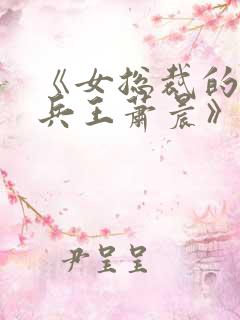 《女总裁的
兵王萧晨》
尹呈呈